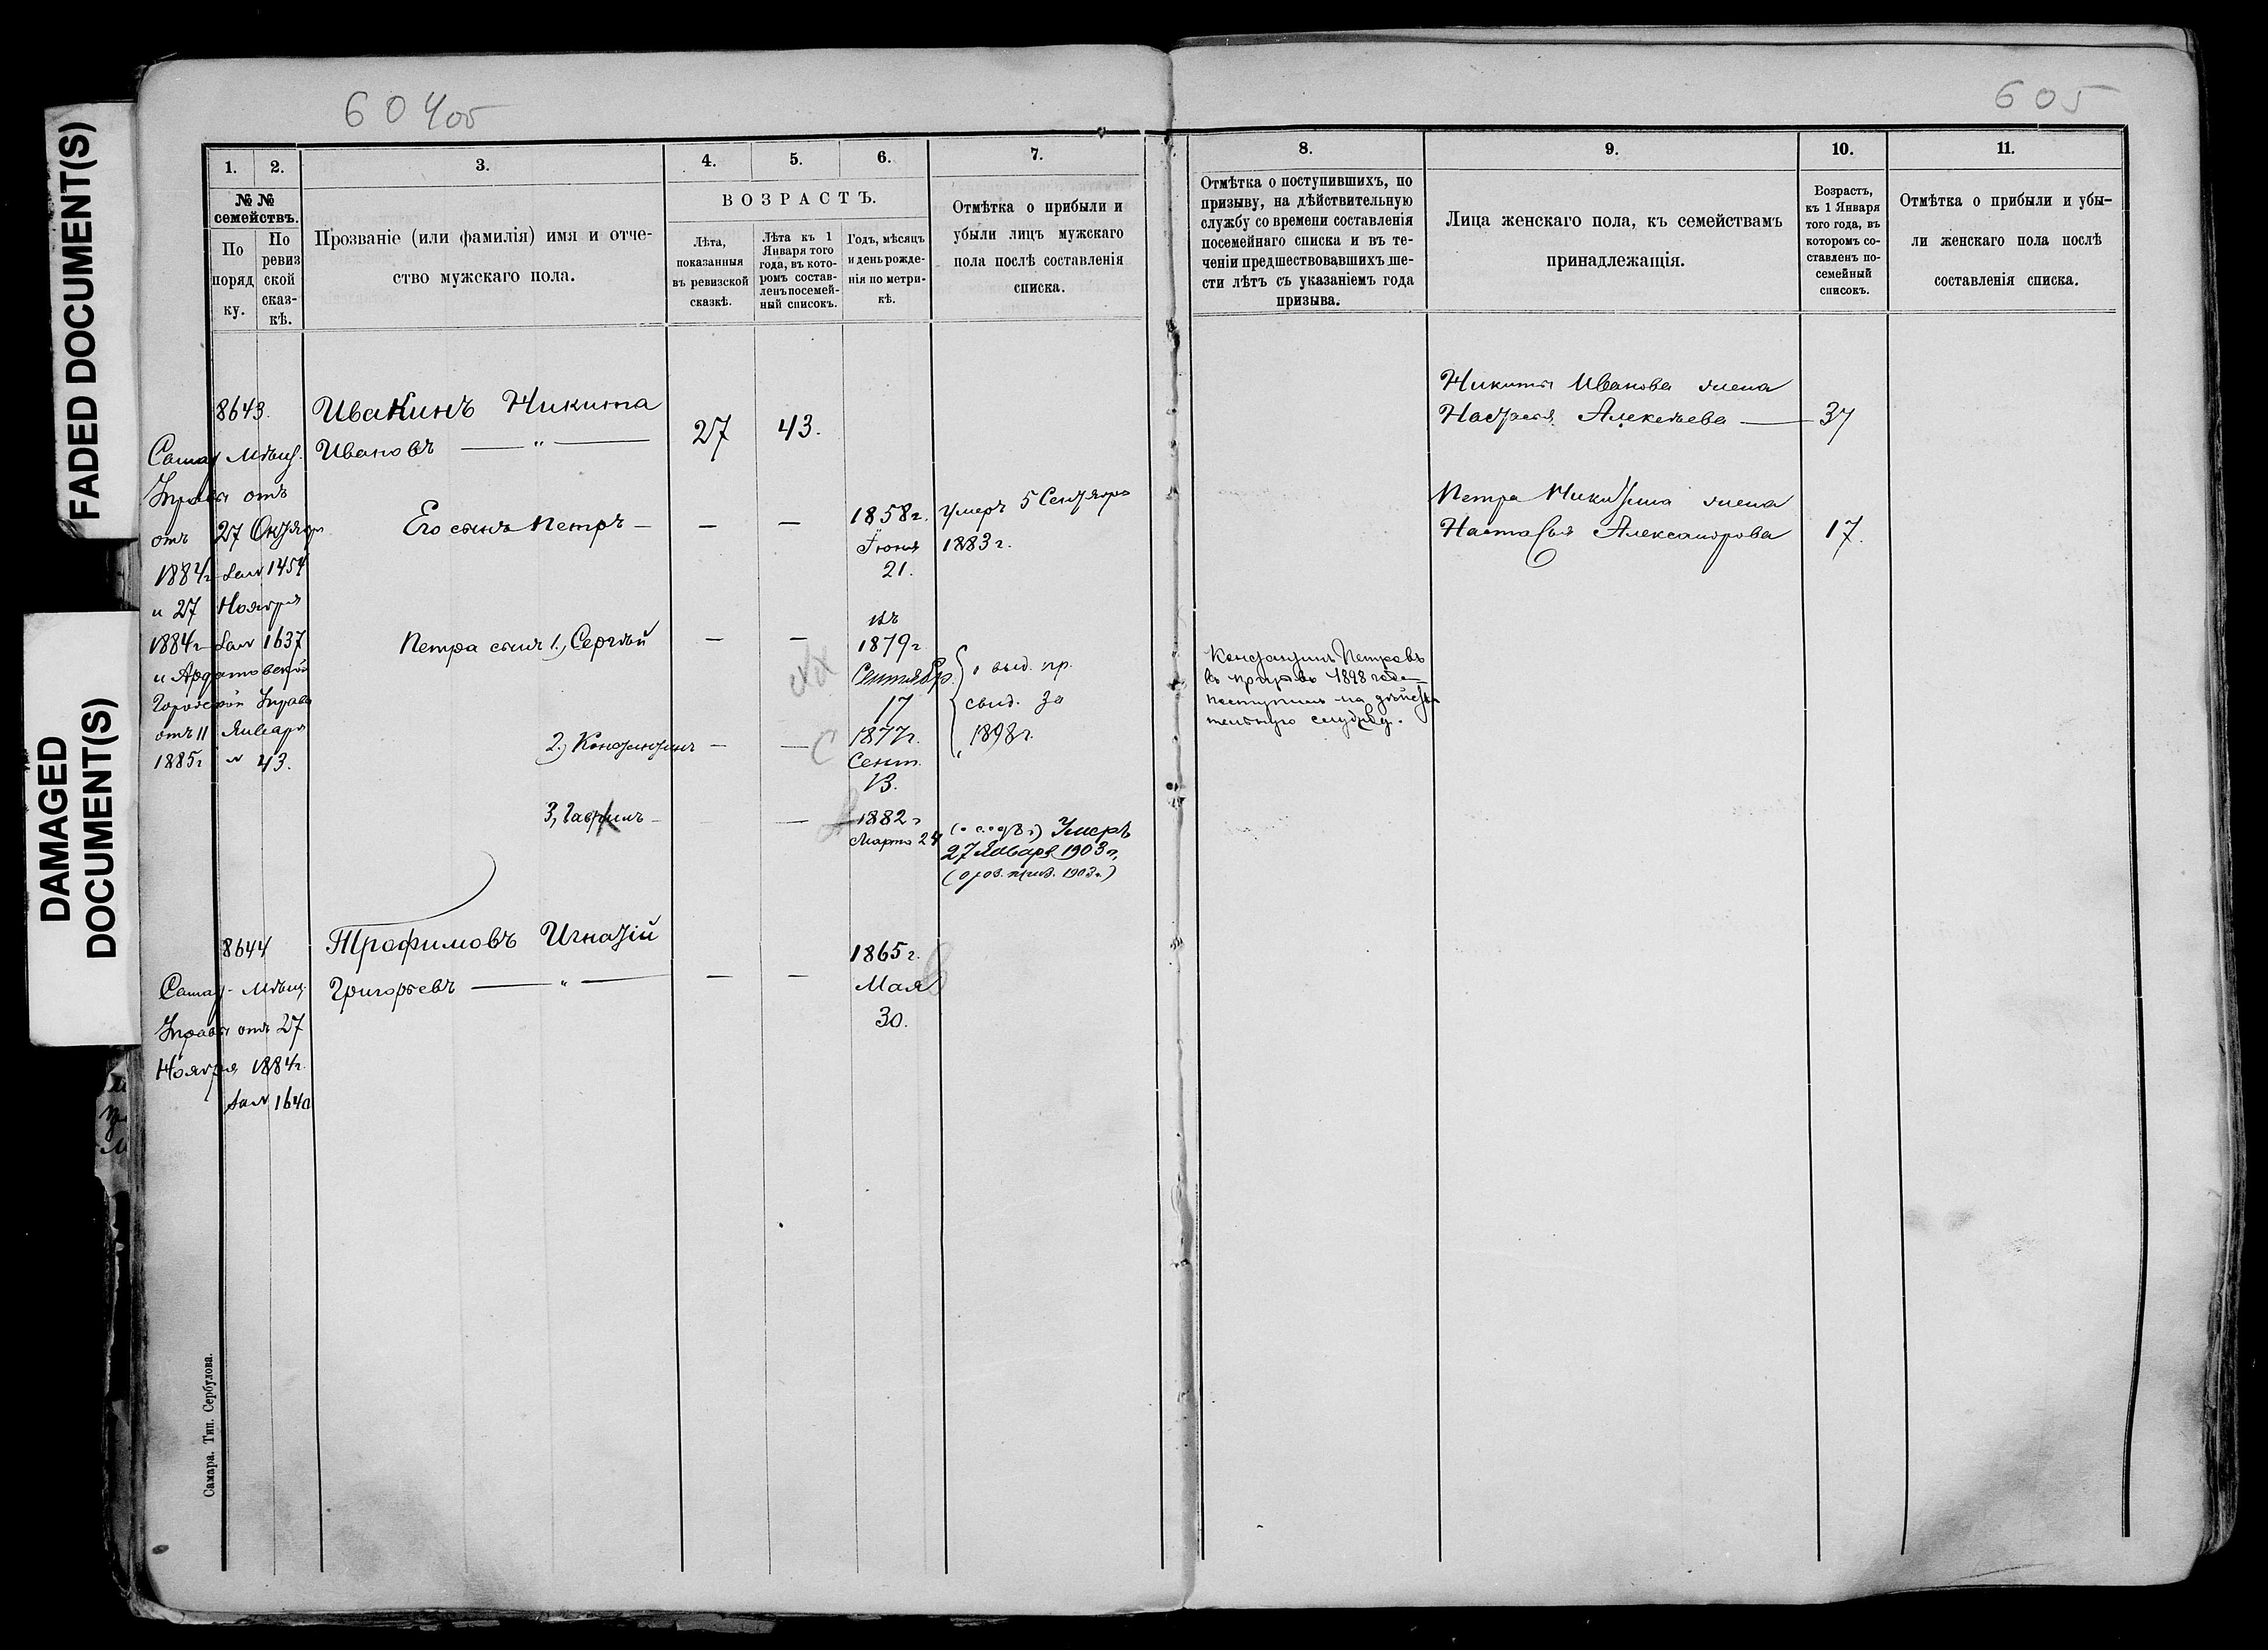 FADED DOCUMENT(S)
DAMAGED
DOCUMENT(S)
604об
605
1.
2.
3.
4.
5.
6.
7.
№ №
семействъ.
По
поряд
ку.
По
ревиз
ской
сказ-
кѣ.
Прозваніе (или фамилія) имя и отче-
ство мужскаго пола.
ВОЗРАСТЪ.
Лѣта,
показанныя
въ ревизской
сказкѣ.
Лѣта къ 1
Января того
года, въ кото-
ромъ состав-
ленъ посемей-
ный списокъ.
Годъ, мѣсяцъ
и день рожде-
нія по метри-
кѣ.
Отмѣтка о прибыли и
убыли лицъ мужскаго
пола послѣ составленія
списка.
8643.
Ивакинъ Никита
Ивановъ — " —
27
43.
Самар Мѣщ.
Управы отъ
отъ 27 Октября
1884 г за № 1454
и 27 Ноября
1884 г за № 1637
и Ардатовской
Городской Управы
отъ 11 Января
1885 г № 43.
Его сынъ Петръ —
—
—
1858 г.
Іюня
21.
Умеръ 5 Сентября
1883 г.
Петра сын. 1., Сергѣй
—
—
1879 г
Сентябр.
17
выд. пр.
свид. за
1898 г.
2.) Константинъ
—
—
С
1877 г.
Сент.
13.
3, Гаврилъ —
—
1882 г
Марта 24
Умеръ
27 Января 1903 г.
1903 г.)
8644
Трофимовъ Игнатій
Григорьевъ — " —
—
—
1865 г.
Мая
30.
Самар. Мѣщ.
Управы отъ 27
Ноября 1884 г.
за № 1640
Самара. Тип. Сербулова.
8.
9.
10.
11.
Отмѣтка о поступившихъ, по
призыву, на дѣйствительную
службу со времени составленія
посемейнаго списка и въ те-
ченіи предшествовавшихъ ше-
сти лѣтъ съ указаніемъ года
призыва.
Лица женскаго пола, къ семействамъ
принадлежащія.
Возрастъ,
къ 1 Января
того года, въ
которомъ со-
ставленъ по-
семейный
списокъ.
Отмѣтка о прибыли и убы-
ли женскаго пола послѣ
составленія списка.
Никиты Иванова жена
Настасья Алексѣева — 37
Петра Никитина жена
Настасья Александрова 17.
Константинъ Петровъ
въ призывъ 1898 года
поступилъ на дѣйстви
тельную службу.